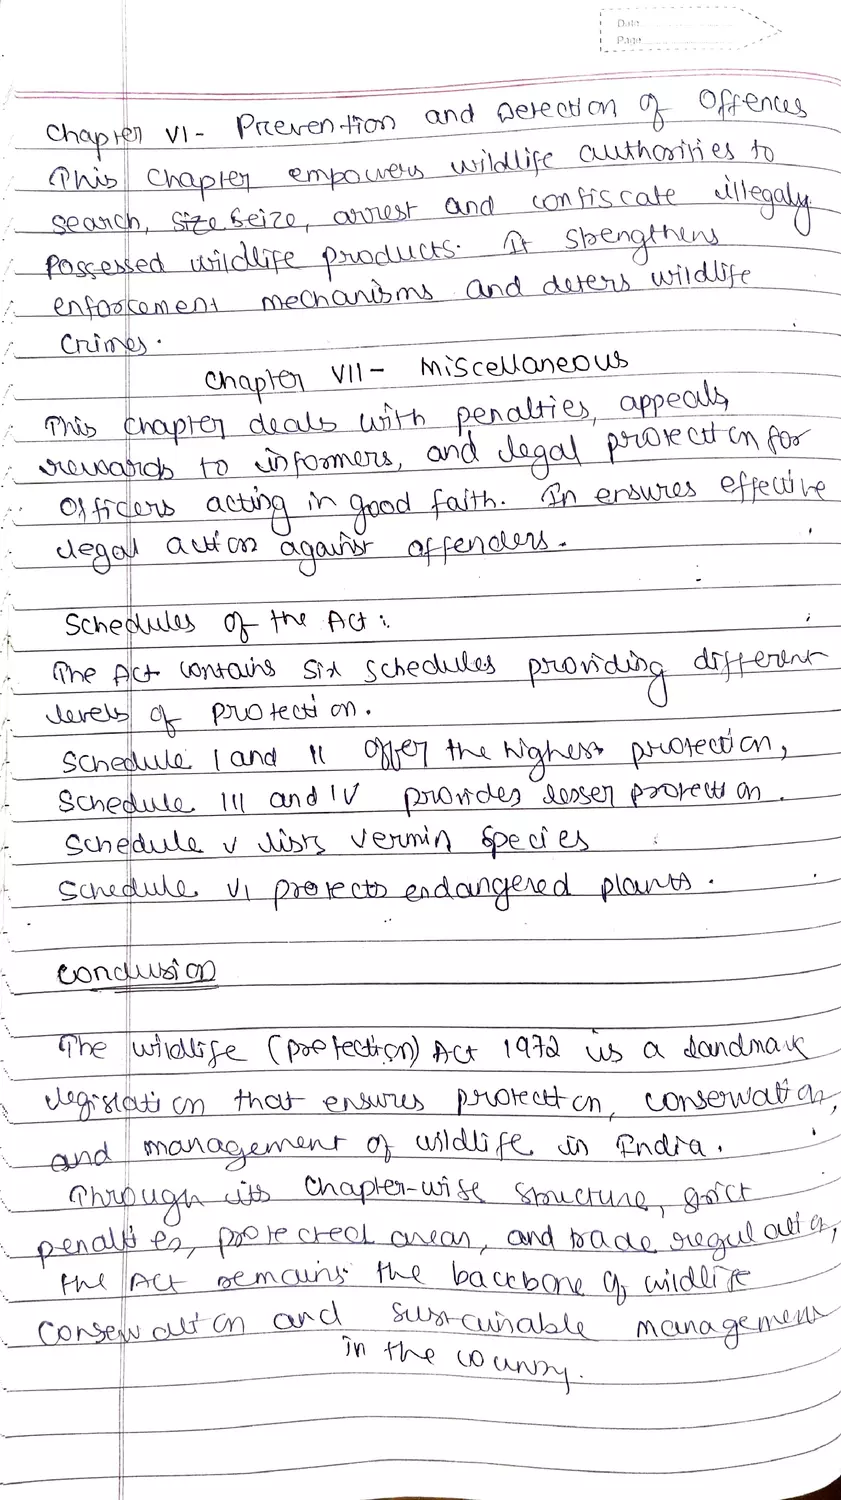 Date
Page
Chapter VI - Prevention and Detection of Offences
This Chapter empowers wildlife authorities to
search, size seize, arrest and confiscate illegaly
Possessed wildlife products. It strengthens
enforcement mechanisms and deters wildlife
Crimes.
Chapter VII - Miscellaneous
This chapter deals with penalties, appeals,
rewards to informers, and legal protection for
Officers acting in good faith. In ensures effective
legal action against offenders.
Schedules of the Act:
The Act contains six schedules providing different
levels of protection.
Schedule I and II offer the highest protection,
Schedule III and IV provides lesser protection.
Schedule V lists vermin species
Schedule VI protects endangered plants.
Conclusion
The wildlife (protection) Act 1972 is a landmark
legislation that ensures protection, conservation,
and management of wildlife in India.
Through its chapter-wise structure, strict
penalties, protected areas, and trade regulation,
the Act remains the backbone of wildlife
Conservation and sustainable management
in the country.